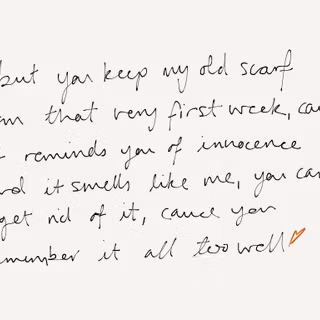 but you keep my old scarf
that very first week,
reminds you of innocence
it smells like me, you
get rid of it, cause you
it all too well